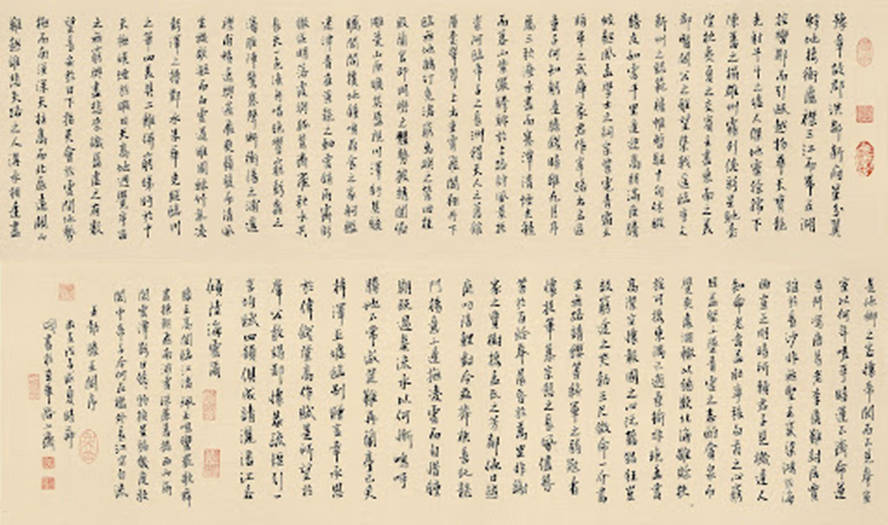 豫章故郡洪都新府星分翼
軫地接衡廬襟三江而帶五湖
控蠻荊而引甌越物華天寶龍
光射斗牛之墟人傑地靈徐孺下
陳蕃之榻雄州霧列俊彩星馳臺
隍枕夷夏之交賓主盡東南之美
都督閻公之雅望棨戟遙臨宇文
新州之懿範襜帷暫駐十旬休暇
勝友如雲千里逢迎高朋滿座騰
蛟起鳳孟學士之詞宗紫電青霜王
將軍之武庫家君作宰路出名區
童子何知躬逢勝餞時維九月序
屬三秋潦水盡而寒潭清煙光凝
而暮山紫儼驂騑於上路訪風景於
崇阿臨帝子之長洲得天人之舊館
層巒聳翠上出重霄飛閣翔丹下
臨無地鶴汀鳧渚窮島嶼之縈迴桂
殿蘭宮即岡巒之體勢披繡闥俯
雕甍山原曠其盈視川澤紆其駭
矚閭閻撲地鐘鳴鼎食之家舸艦
迷津青雀黃龍之舳雲銷雨霽彩
徹區明落霞與孤鶩齊飛秋水共
長天一色漁舟唱晚響窮彭蠡之
濱雁陣驚寒聲斷衡陽之浦遙
襟甫暢逸興遄飛爽籟發而清風
生纖歌凝而白雲遏睢園綠竹氣凌
彭澤之樽鄴水朱華光照臨川
之筆四美具二難併窮睇眄於中
天極娛遊於暇日天高地迥覺宇宙
之無窮興盡悲來識盈虛之有數
望長安於日下指吳會於雲間地勢
極而南溟深天柱高而北辰遠關山
難越誰悲失路之人萍水相逢盡
是他鄉之客懷帝閽而不見奉宣
室以何年嗟乎時運不齊命途
多舛馮唐易老李廣難封屈賈
誼於長沙非無聖主竄梁鴻於海
曲豈乏明時所賴君子見機達人
知命老當益壯寧移白首之心窮
且益堅不墜青雲之志酌貪泉而
覺爽處涸轍以猶歡北海雖賒扶
搖可接東隅已逝桑榆非晚孟嘗
高潔空懷報國之心阮籍猖狂豈
效窮途之哭勃三尺微命一介書
生無路請纓等終軍之弱冠有
懷投筆慕宗愨之長風舍簪
笏於百齡奉晨昏於萬里非謝
家之寶樹接孟氏之芳鄰他日趨
庭叨陪鯉對今茲捧袂喜托龍
門楊意不逢撫凌雲而自惜鍾
期既遇奏流水以何慚嗚呼
勝地不常盛筵難再蘭亭已矣
梓澤丘墟臨別贈言幸承恩
於偉餞登高作賦是所望於
群公敢竭鄙懷恭疏短引一
言均賦四韻俱成請灑潘江各
傾陸海云爾
滕王高閣臨江渚佩玉鳴鸞罷歌舞
畫棟朝飛南浦雲珠簾暮捲西山雨
閒雲潭影日悠悠物換星移幾度秋
閣中帝子今何在檻外長江空自流
王勃滕王閣序
戊子